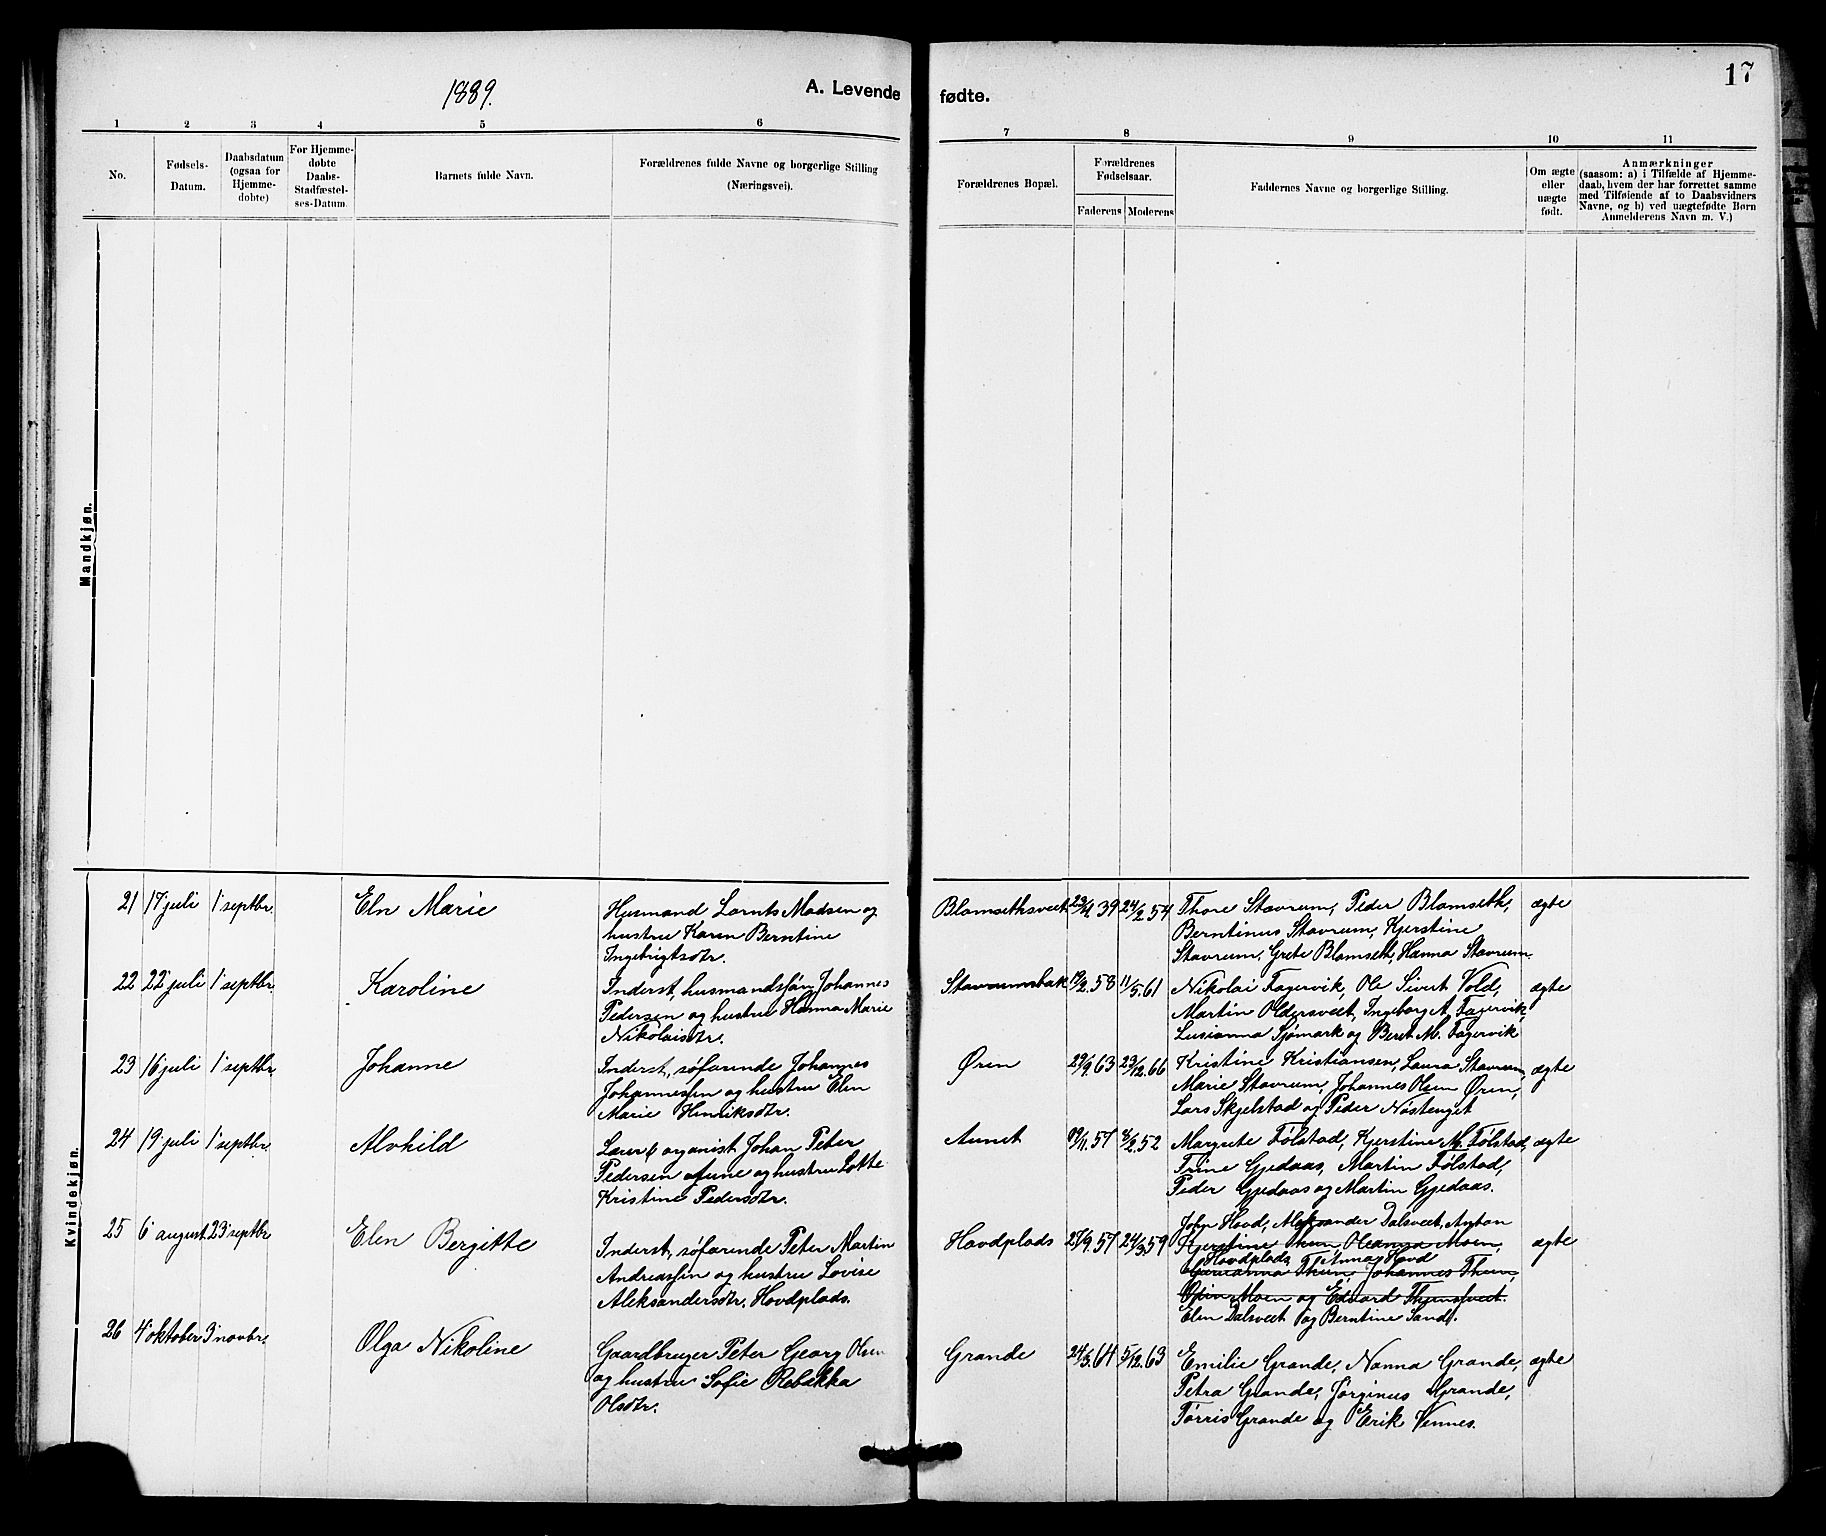 1889.
A. Levende
fødte.
17
1 2 3 4 5 6 7 8 9 10 11
No.
Fødsels-
Datum.
Daabsdatum
(ogsaa for
Hjemme-
døbte)
For Hjemme-
døbte
Daabs-
Stadfæstel-
ses-Datum.
Barnets fulde Navn.
Forældrenes fulde Navne og borgerlige Stilling
(Næringsvei).
Forældrenes Bopæl.
Forældrenes
Fødselsaar.
Faderens Moderens
Faddernes Navne og borgerlige Stilling.
Om ægte
eller
uægte
født.
Anmærkninger
(saasom: a) i Tilfælde af Hjemme-
daab, hvem der har forrettet samme
med Tilføiende af to Daabsvidners
Navne, og b) ved uægtefødte Børn
Anmelderens Navn m. V.)
Mandkjøn.
Kvindekjøn.
21 17' juli 1' septbr. Eln Marie
Husmand Lornts Madsen og
hustru Karen Berntine
Ingebrigtsdtr.
Blomsethsveet 23/4 39 24/2 54
Thore Stavrum, Peder Blomseth,
Berntinus Stavrum, Kjerstine
Stavrum, Grete Blomseth, Hanna Stavrum.
ægte
22 22' juli 1' septbr. Karoline
Inderst, husmandssøn Johannes
Pedersen og hustru Hanna Marie
Nikolaisdtr.
Stavrumsbak 19/2 58 11/5 61
Nikolai Fagervik, Ole Sivert Vold,
Martin Oldersveet, Ingeborg A. Fagervik,
Lusianna Sjømark og Beret M. Fagervik
ægte
23 16' juli 1' septbr. Johanne
Inderst, søfarende Johannes
Johannessen og hustru Elen
Marie Henriksdtr.
Øren 29/9 63 23/12 66
Kristine Kristiansen, Laura Stavrum,
Marie Stavrum, Johannes Olsen Øren,
Lars Skjelstad og Peder Nøstenget
ægte
24 19' juli 1' septbr. Alvhild
Lærer & organist Johan Peter
Pedersen Aune og hustru Lotte
Kristine Pedersdtr.
Aunet 57 52
Margrete Følstad, Kjerstine M. Følstad,
Trine Gjedaas, Martin Følstad,
Peder Gjedaas og Martin Gjedaas.
ægte
25 6' august 23' septbr Elen Bergitte
Inderst, søfarende Peter Martin
Andreassen og hustru Lovise
Aleksandersdtr. Hovdplads.
Hovdplads 27/9 57 24/3 59
John Hovd, Aleksander Dalsveet, Anton
Kjerstine Thun, Oleanna Moen,
Hovdplads, Anna Hovd
Thun, Johannes Thun,
Moen og Edvard
Elen Dalsveet og Berntine Sand.
ægte
26 4' oktober 3' novbr. Olga Nikoline
Gaardbruger Peter Georg Olsen
og hustru Sofie Rebekka
Olsdtr.
Grande 24/3 64 5/12 63
Emilie Grande, Nanna Grande,
Petra Grande, Jørginus Grande,
Tørris Grande og Erik Vennes.
ægte